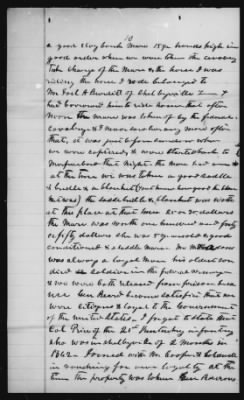 10
a good sorrel mare 15½ hands high in
good order when we were there the cavalry
took charge of the mare & the horse I was
riding the horse I rode belonged to
Mr. Joel A Burditt of Shelbyville I
had borrowed him to ride home that after
noon the mare was taken off by the
cavalry & I never saw her any more after
that, it was just before sundown when
we were captured, & were started back to
Murfreesboro that night. the mare had
at the time we was taken a good saddle
& bridle & a blanket
was) the saddle bridle & blanket was worth
at the place at that time 25 or 30 dollars
the mare was worth one hundred and forty
or fifty dollars she was 7 yrs old & good
conditioned & a saddle mare. Mr
was always a loyal man his oldest son
died a soldier in the federal army
& we were both released from prison because
Gen Beard became satisfied that we
were citizens & loyal to the Government
of the United States. I forgot to state that
Col Price of the 21st Kentucky infantry
who was in Shelbyville 2 months in
1862 Joined with Mr. Cooper &
in vouching for our loyalty at the
time the property was taken Gen